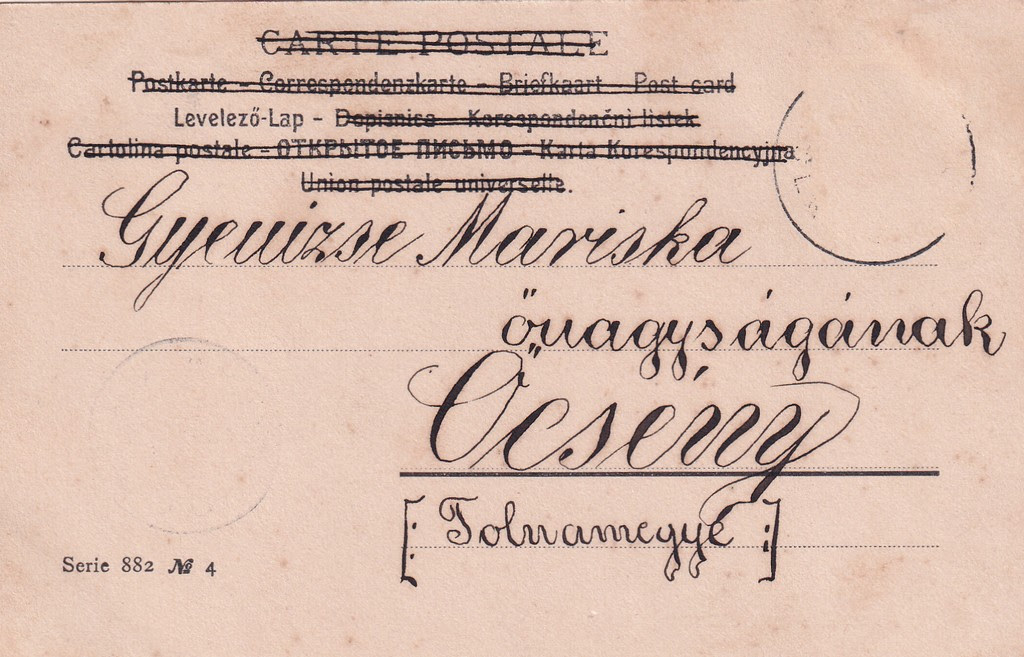 CARTE POSTALE
Postkarte – Correspondenzkarte – Briefkaart – Post card
Levelező-Lap – Dopisnica – Korespondenční listek
Cartolina postale – ОТКРЫТОЕ ПИСЬМО – Karta Korespondencyjna
Union postale universelle.
Gyenizse Mariska
őnagyságának
Őcsény
[: Tolnamegye :]
Serie 882 № 4